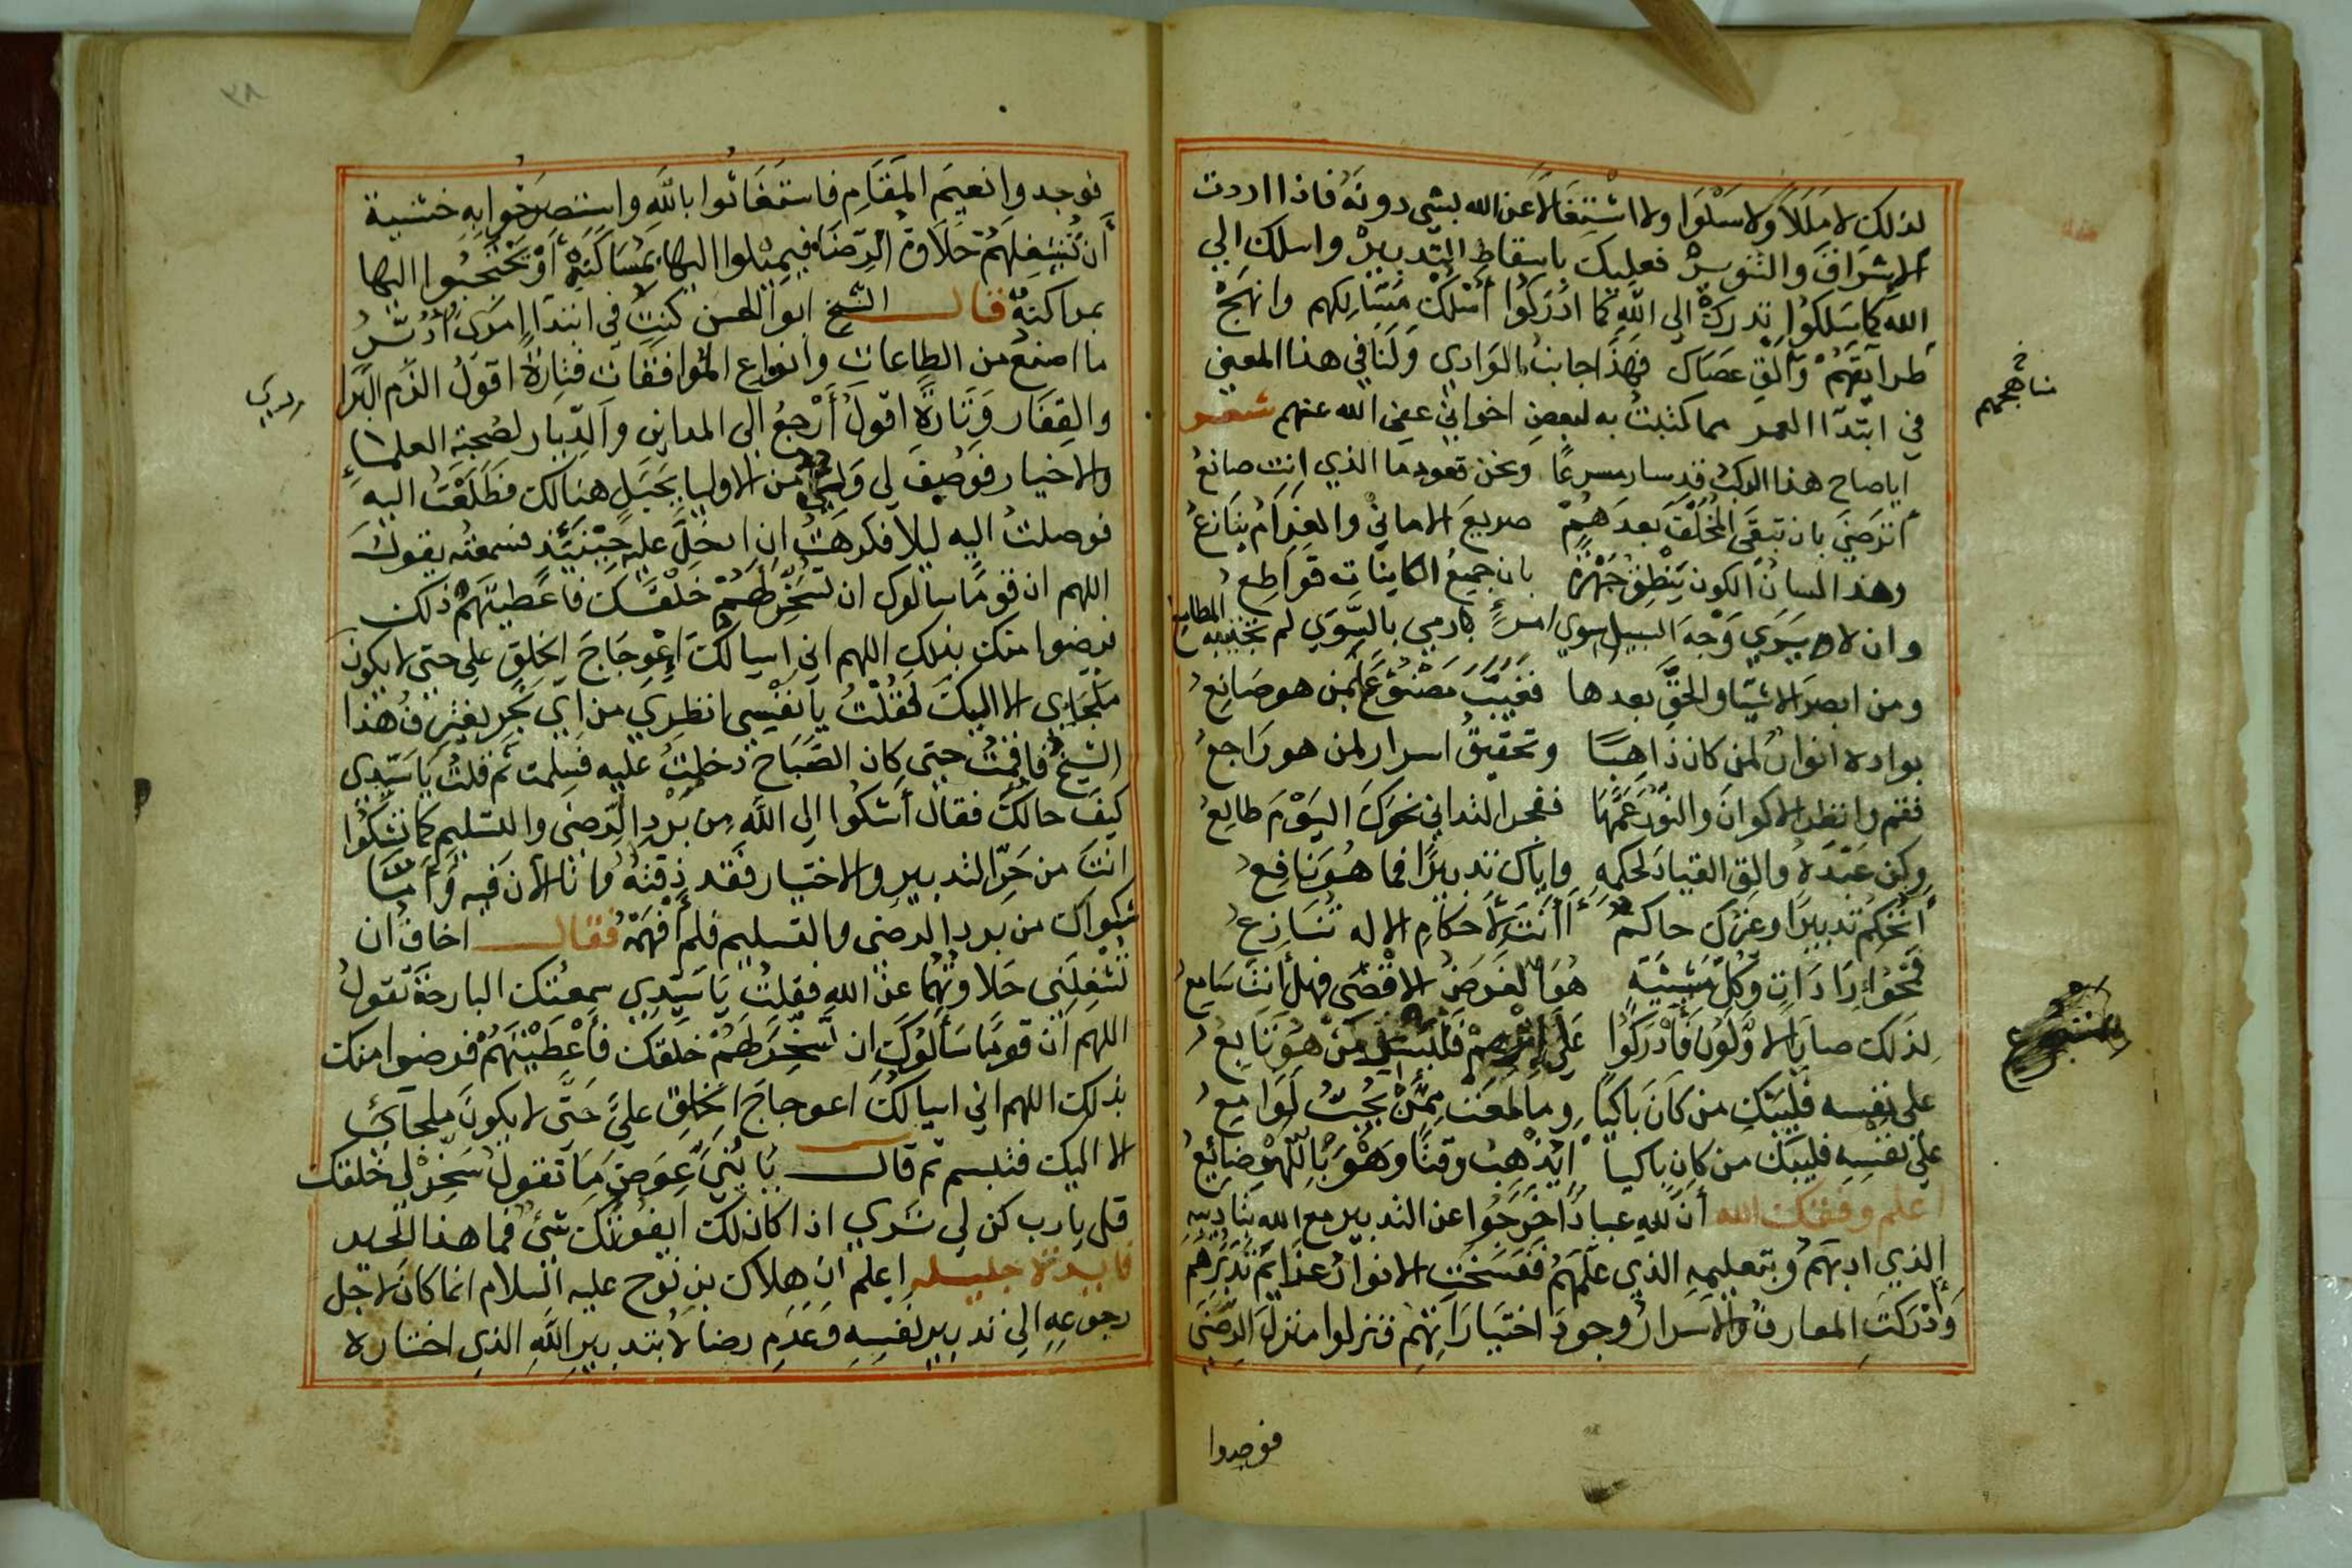 لذلك لا مَلَلاً ولا سَلْوَا ولا اشْتِغَالاً عَن الله بشيءٍ دونَهُ فاذا اردت
الاشراقَ والتنويرْ فعليك باسقاط التدبيرْ واسلك الي
الله كما سَلكُوا تدركْ الي الله كما ادْرَكُوا أسْلكْ مَسَالِكهم وانهَجْ
طرايقَهُمْ وَالْقِ عصَاك فهَذا جانبُ الوَادي وَلَنَا في هذا المعني
في ابتدآ العمر مما كتبتُ به لبعضِ اخواني عفي الله عنهم شعر
أيا صاح هذا الركبُ قد سار مسرعًا ونحن قعود ما الذي انت صانعُ
أترضي بان تبقي المُخَلَّفَ بعدَهُمْ صريعَ الاماني والغرَامُ ينَازعُ
وهذا لسانُ الكونِ يَنْطِقُ جَهْرَةً بان جميعَ الكايناتِ قواطِعُ
وان لا يرَي وَجْهَ السبيلِ سوي امرءٍ رمي بالسِّوَي لم تختدعه المطامع
ومن ابصرَ الاشيَا والحقَّ بعدها فغيَّبَ مَصْنوعًا بمن هو صَانِعُ
بواده انوارٌ لمن كان ذَاهِبًا وتحقيقُ اسرارٍ لمن هو رَاجعُ
فقم وانظر الاكوانَ والنُّورُ عَمَّهَا ففجر التداني نحوَكَ اليَوْمَ طالِعُ
وكن عَبْدَهُ والق القيادَ لحكمِهِ واياك تدبيرًا فما هُوَ نافِعُ
أتُحْكِمُ تدبيرًا وغيرُك حاكمٌ أأنتَ لأحكامِ الاله تُنَازعُ
فَمَحْوُ إِرَادَاتٍ وكُلِّ مَشِيَّةٍ هُوَ الغرضُ الاقْصَي فهل أنتَ سَامِعُ
لِذلك سارَ الاوَّلُونَ فَأدْرَكُوا عَلَي إِثْرِهِمْ فليسَلْ مَنْ هُوَ تَابِعُ
علي نفسِه فليبْكِ من كَانَ بَاكيًا وما لمعَت مِمَّنْ يُحِبُّ لَوَامِعُ
علي نَفْسِه فليبك من كان باكيا أيَذْهِبُ وقتًا وَهْوَ بِاللَّهْوِ ضَائِعُ
اعلم وفقك الله أن لله عبادًا خَرَجُوا عن التدبير مع الله بتاديبه
الذي ادبهَمُ وبتعليمِه الذي علّمَهُمْ ففسَخَتِ الانوارُ عزَايمَ تَدْبيرِهِم
وَدَكَّتِ المعارفُ والاسْرارُ وجودَ اختيَارَاتِهِم فنزلوا منزلَ الرِّضَي
مناهجهم
متبوع
فوجدوا
٣٨
فوجدوا نعيمَ المَقَامِ فاستغاثوا باللهِ واستصرَخُوا بِهِ خشية
أن تُشغِلَهُمْ حَلاوَةُ الرِّضَا فيميْلوا اليها بمُسَاكَنَةٍ أوْ يَحْتَجِبُوا اليها
بمراكنةٍ قال الشيخ ابو الحسن كنت في ابتدآ امري ادَبِّرُ
ما اصنع من الطاعات وانواع الموافقات فتارةً اقولُ الزم البراري
والقِفَار وَتَارَةً اقولُ أَرْجعُ الي المداين والدِّيار لصُحبة العلمآءِ
والاخيار فوُصِفَ لي وَليٌّ من الاوليا بجَبَلٍ هنالك فطَلَعْتُ اليه
فوصلتُ اليه ليلا فكرهْتُ ان ادخلَ عليه حِيْنَيئذ فسمعته يقول
اللهم ان قومًا سألوك ان تسَخِّرَ لهُمْ خَلْقَكَ فاعطيتَهم ذلك
فرضوا منك بذلكِ اللهم اني اسالكَ اعْوِجَاجَ الخلقِ علي حتي لا يكون
ملجَايَ الا اليكَ فقُلْتُ يا نفْسِي انظري من ايِّ بَحْرٍ يغترِفُ هذا
الشيخ فأقمْتُ حتي كان الصَّبَاح دخلتُ عليه فسلمت ثم قلتُ يَا سَيّدِي
كيفَ حالكَ فقال أشكُوا الي اللهِ مِن بَرْدِ الرِّضَي والتسليم كما تَشكُوا
انتَ من حَرِّ التدبيرِ والاختيار فَقد ذقتهُ وانا الآن فيه وَامَّا
شكواك من برد الرضي والتسليم فلم أَفْهَمْهُ فقال اخافُ ان
تُشْغِلَنِي حَلاوتُهُما عن اللهِ فقلتُ يَا سَيّدِي سمِعتُك البارحَةَ تقولُ
اللهم ان قومًا سَألُوكَ ان تُسَخِّرَ لهُمْ خَلقَك فأعْطَيْتَهُمْ فرضوا منك
بذلك اللهم اني اسالكَ اعوجاجَ الخلقِ عليَّ حَتَّي لا يكونَ ملجآيَ
الا اليك فتبسم ثم قال يَا بُنَيَّ عِوَضَ مَا تقولُ سَخِّرْ لي خلقك
قل يا رب كن لي تَرَي اذا كان لك ايفُوتُك شيءٌ فما هذا
فايدة جليلة اعلم ان هلاك بن نُوح عليه السلام انما كان لاجل
رجوعِهِ الي تدبير نفسِهِ وَعَدَمِ رضاهُ بتدبيرِ اللهِ الذي اختاره